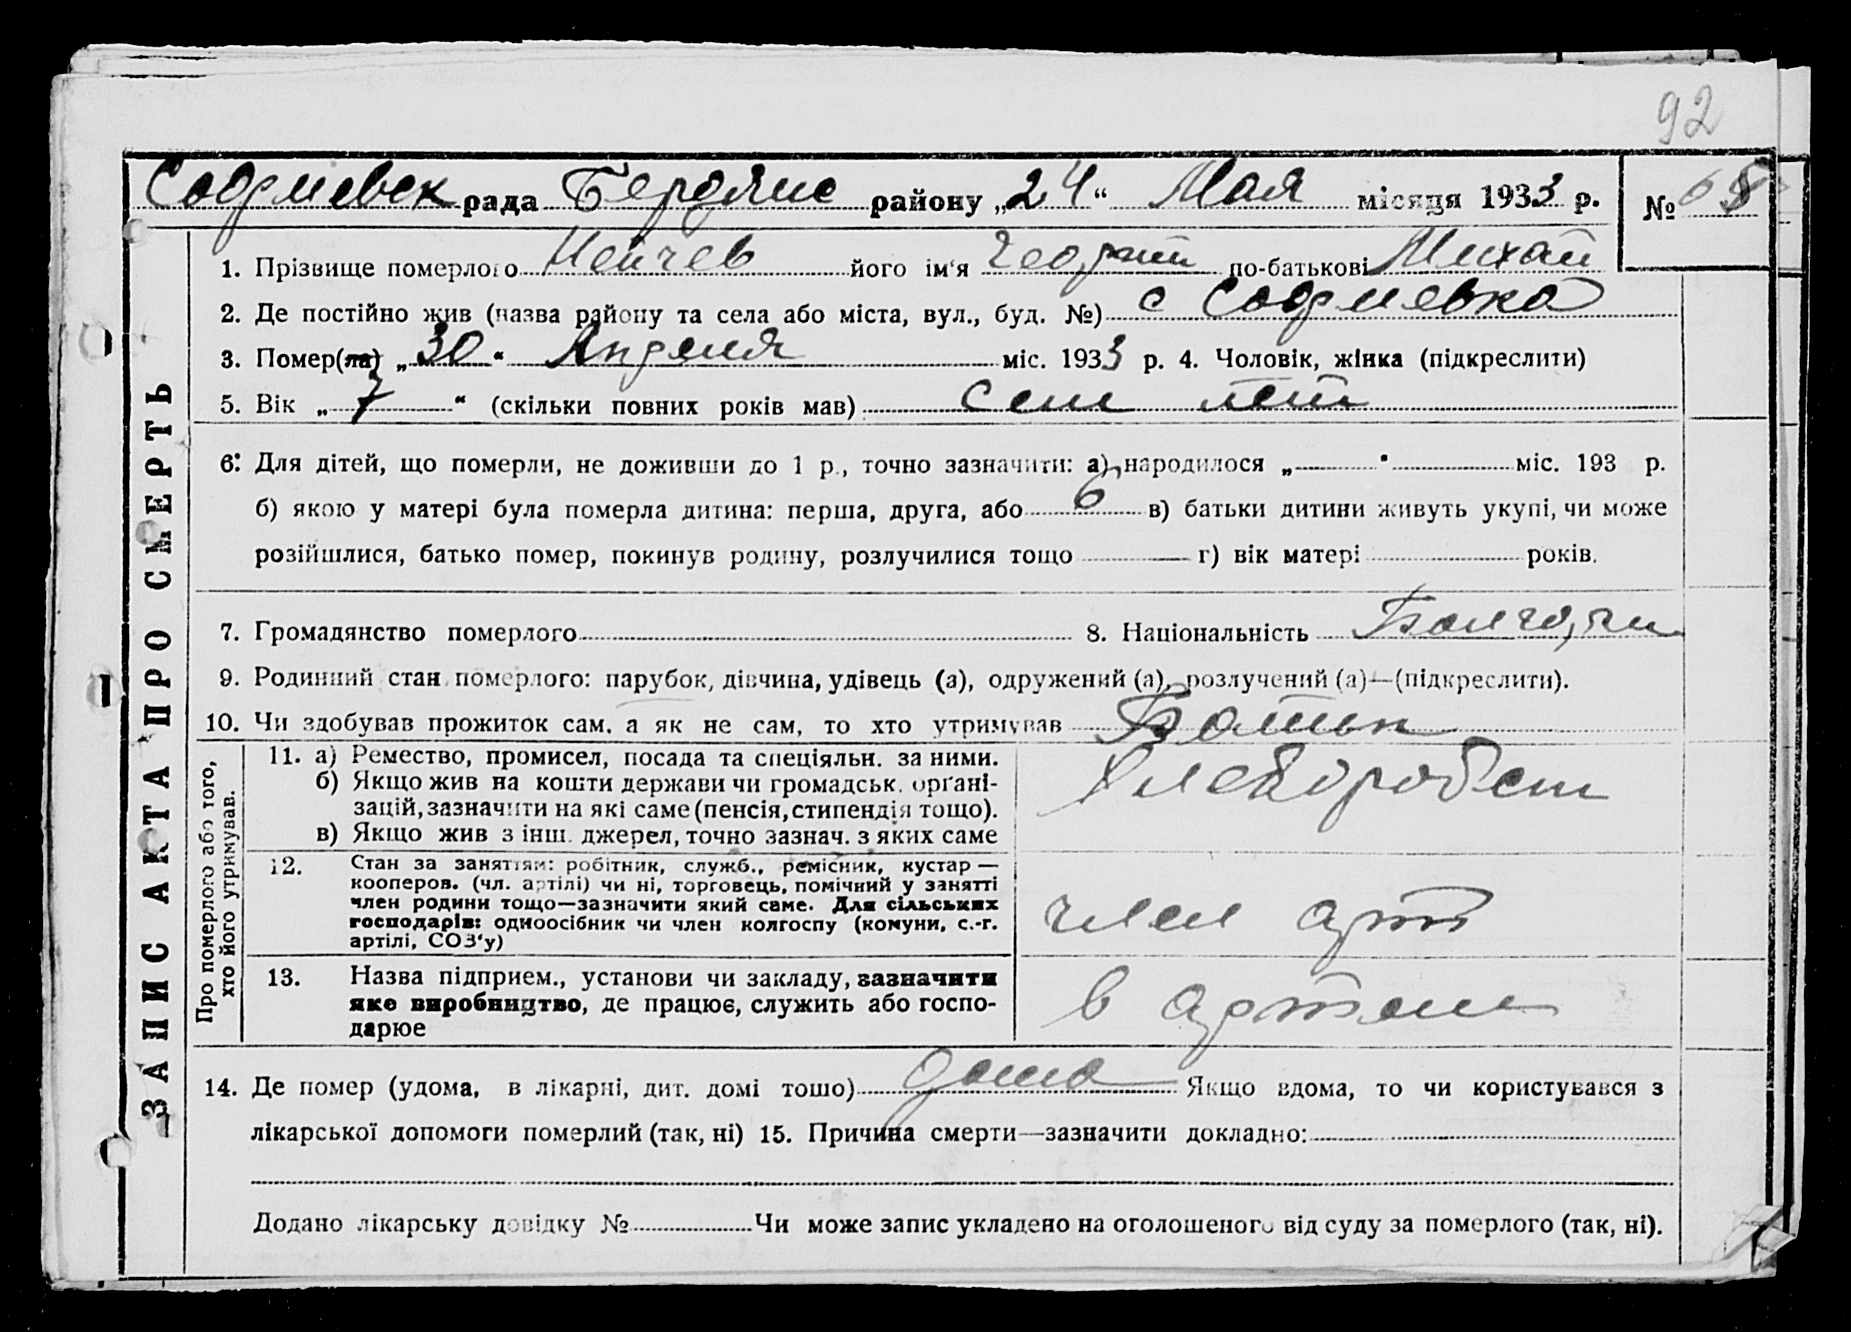 92
Софиевск рада Бердянс району „24“ Мая місяця 1933 р. № 68
1. Прізвище померлого Нейчев його ім'я Георгий по-батькові Михай
2. Де постійно жив (назва району та села або міста, вул., буд. №) с Софиевка
3. Помер(ла) „30“ Апреля міс. 1933 р. 4. Чоловік, жінка (підкреслити)
5. Вік „7“ (скільки повних років мав) сем лет
6. Для дітей, що померли, не доживши до 1 р., точно зазначити: а) народилося „ “ міс. 193 р.
б) якою у матері була померла дитина: перша, друга, або 6 в) батьки дитини живуть укупі, чи може
розійшлися, батько помер, покинув родину, розлучилися тощо г) вік матері років.
7. Громадянство померлого 8. Національність
9. Родинний стан померлого: парубок, дівчина, удівець (а), одружений (а), розлучений (а)—(підкреслити).
10. Чи здобував прожиток сам, а як не сам, то хто утримував
ЗАПИС АКТА ПРО СМЕРТЬ
Про померлого або того, хто його утримував.
11. а) Ремество, промисел, посада та спеціяльн. за ними.
б) Якщо жив на кошти держави чи громадськ. органі-
зацій, зазначити на які саме (пенсія, стипендія тощо).
в) Якщо жив з інш. джерел, точно зазнач. з яких саме
Хлебороб
12. Стан за заняттям: робітник, служб., ремісник, кустар —
кооперов. (чл. артілі) чи ні, торговець, помічний у занятті
член родини тощо—зазначити який саме. Для сільських
господарів: одноосібник чи член колгоспу (комуни, с.-г.
артілі, СОЗ'у)
член арт
13. Назва підприєм., установи чи закладу, зазначити
яке виробництво, де працює, служить або госпо-
дарює
в артели
14. Де помер (удома, в лікарні, дит. домі тошо) дома Якщо вдома, то чи користувався з
лікарської допомоги померлий (так, ні) 15. Причина смерти—зазначити докладно:
Додано лікарську довідку № Чи може запис укладено на оголошеного від суду за померлого (так, ні).